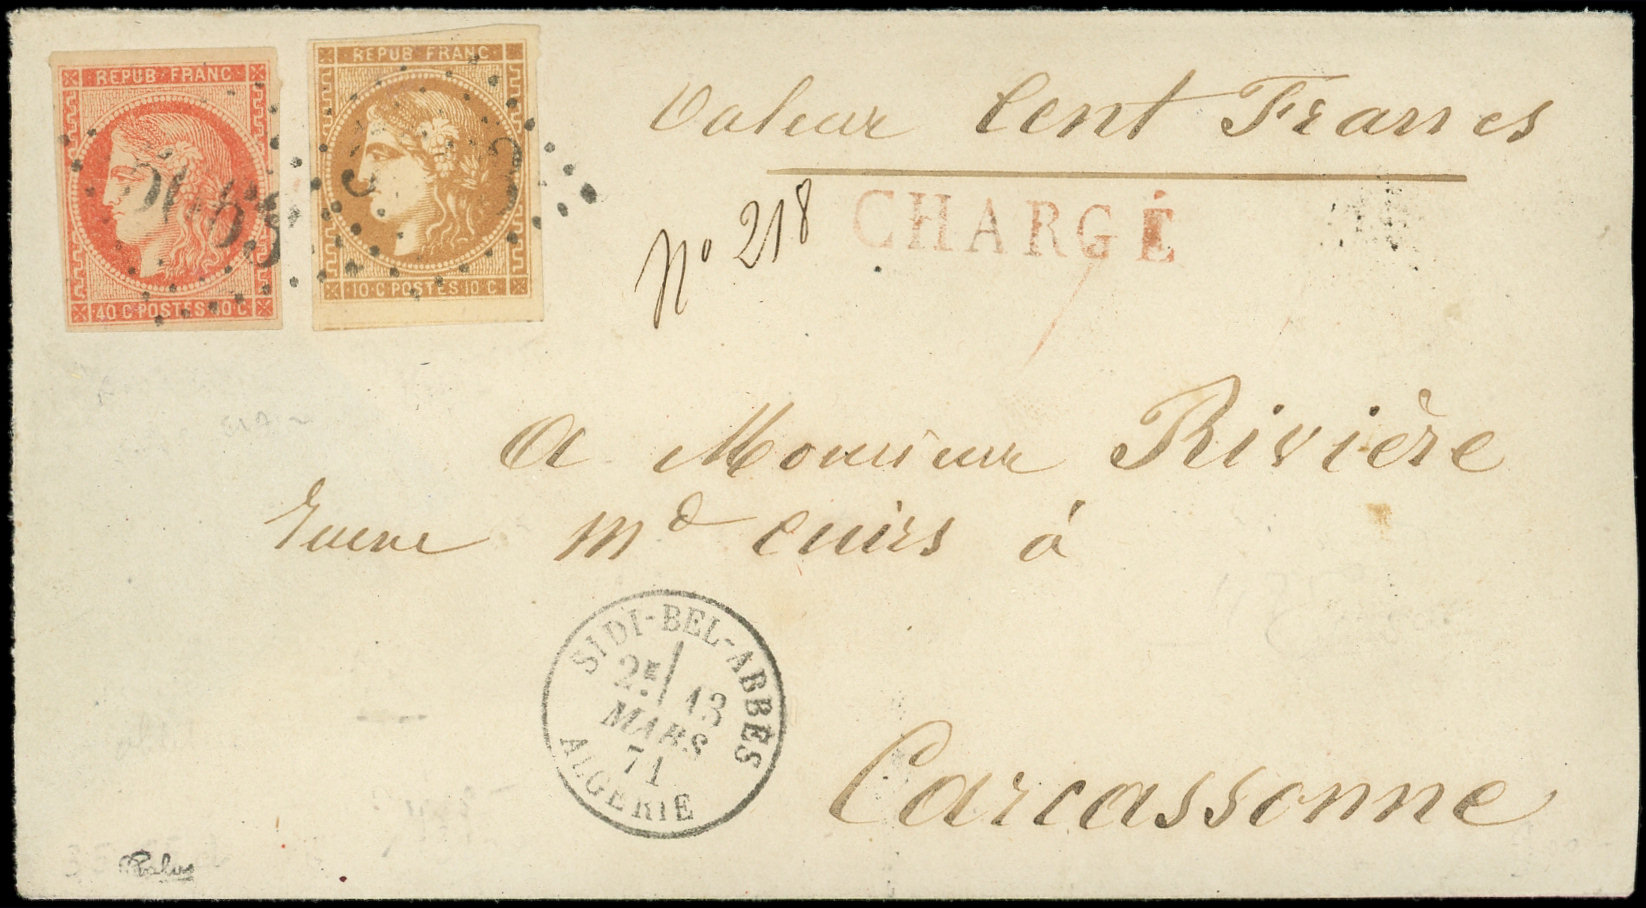 REPUB·FRANC·
40·C·POSTES·40·C·
REPUB·FRANC·
10·C·POSTES·10·C·
Valeur Cent Francs
CHARGÉ
No 218
A Monsieur Rivière
md cuirs à
SIDI-BEL-ABBÈS
2E 13
MARS
71
ALGÉRIE
Carcassonne